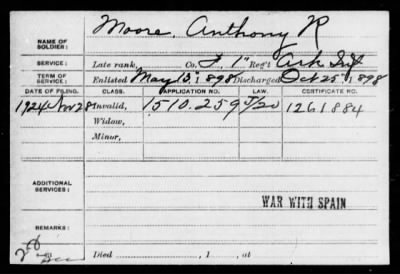 NAME OF SOLDIER: Moore, Anthony R
SERVICE: Late rank, Co. F, 1" Reg't Ark Inf
TERM OF SERVICE: Enlisted May 13, 1898 Discharged Oct 25, 1898
DATE OF FILING. CLASS. APPLICATION NO. LAW. CERTIFICATE NO.
1924 Nov 28 Invalid, 1510.259 5/20 1261884
Widow,
Minor,
ADDITIONAL SERVICES:
WAR WITH SPAIN
REMARKS:
Died , 1 , at